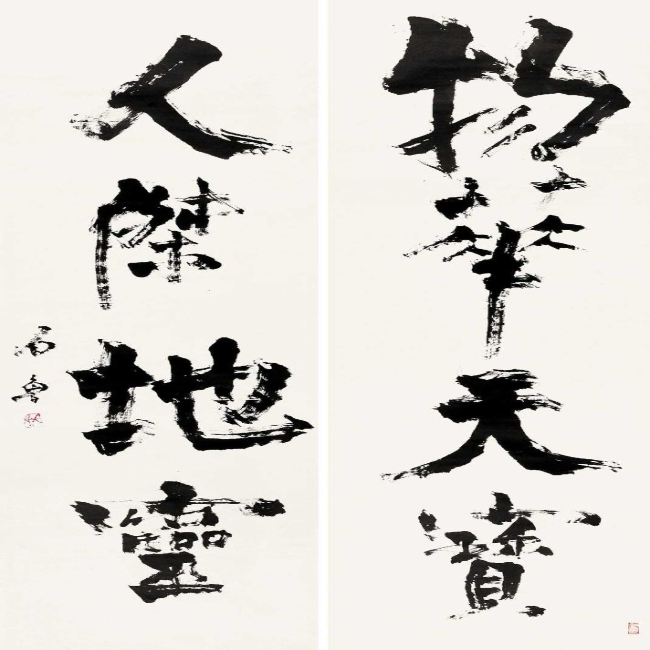 物華天寶
人傑地靈
石魯